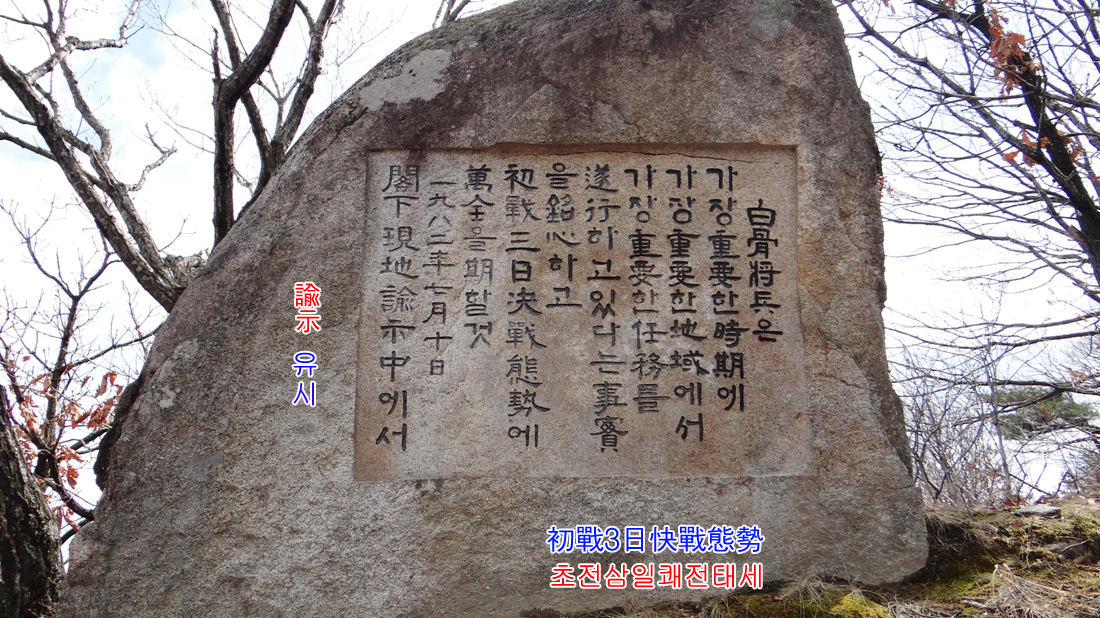 白骨將兵은
가장重要한時期에
가장重要한地域에서
가장重要한任務를
遂行하고있다는事實
을銘心하고
初戰三日決戰態勢에
萬全을期할것
一九八二年七月十日
閣下現地諭示中에서
諭示 유시
初戰3日快戰態勢
초전삼일쾌전태세